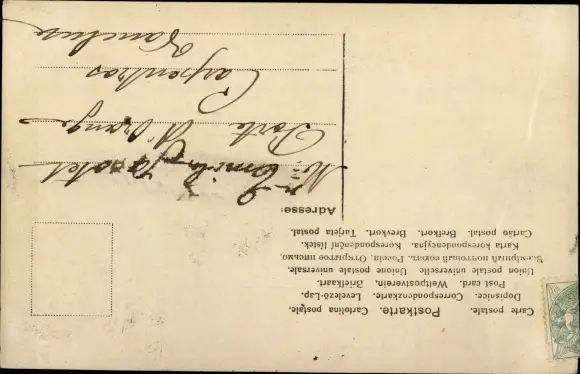 Carte postale. Postkarte. Cartolina postale.
Dopisnice. Correspondenzkarte. Levelező-Lap.
Post card. Weltpostverein. Briefkaart.
Union postale universelle Unione postale universale.
Всемірный почтовый союзъ. Россія. Открытое письмо.
Karta korespondencyjna. Korespondenční lístek.
Cartão postal. Brefkort. Brevkort. Tarjeta postal.
Adresse:
Mr Emile
Porte d'Orange
Carpentras
Vaucluse